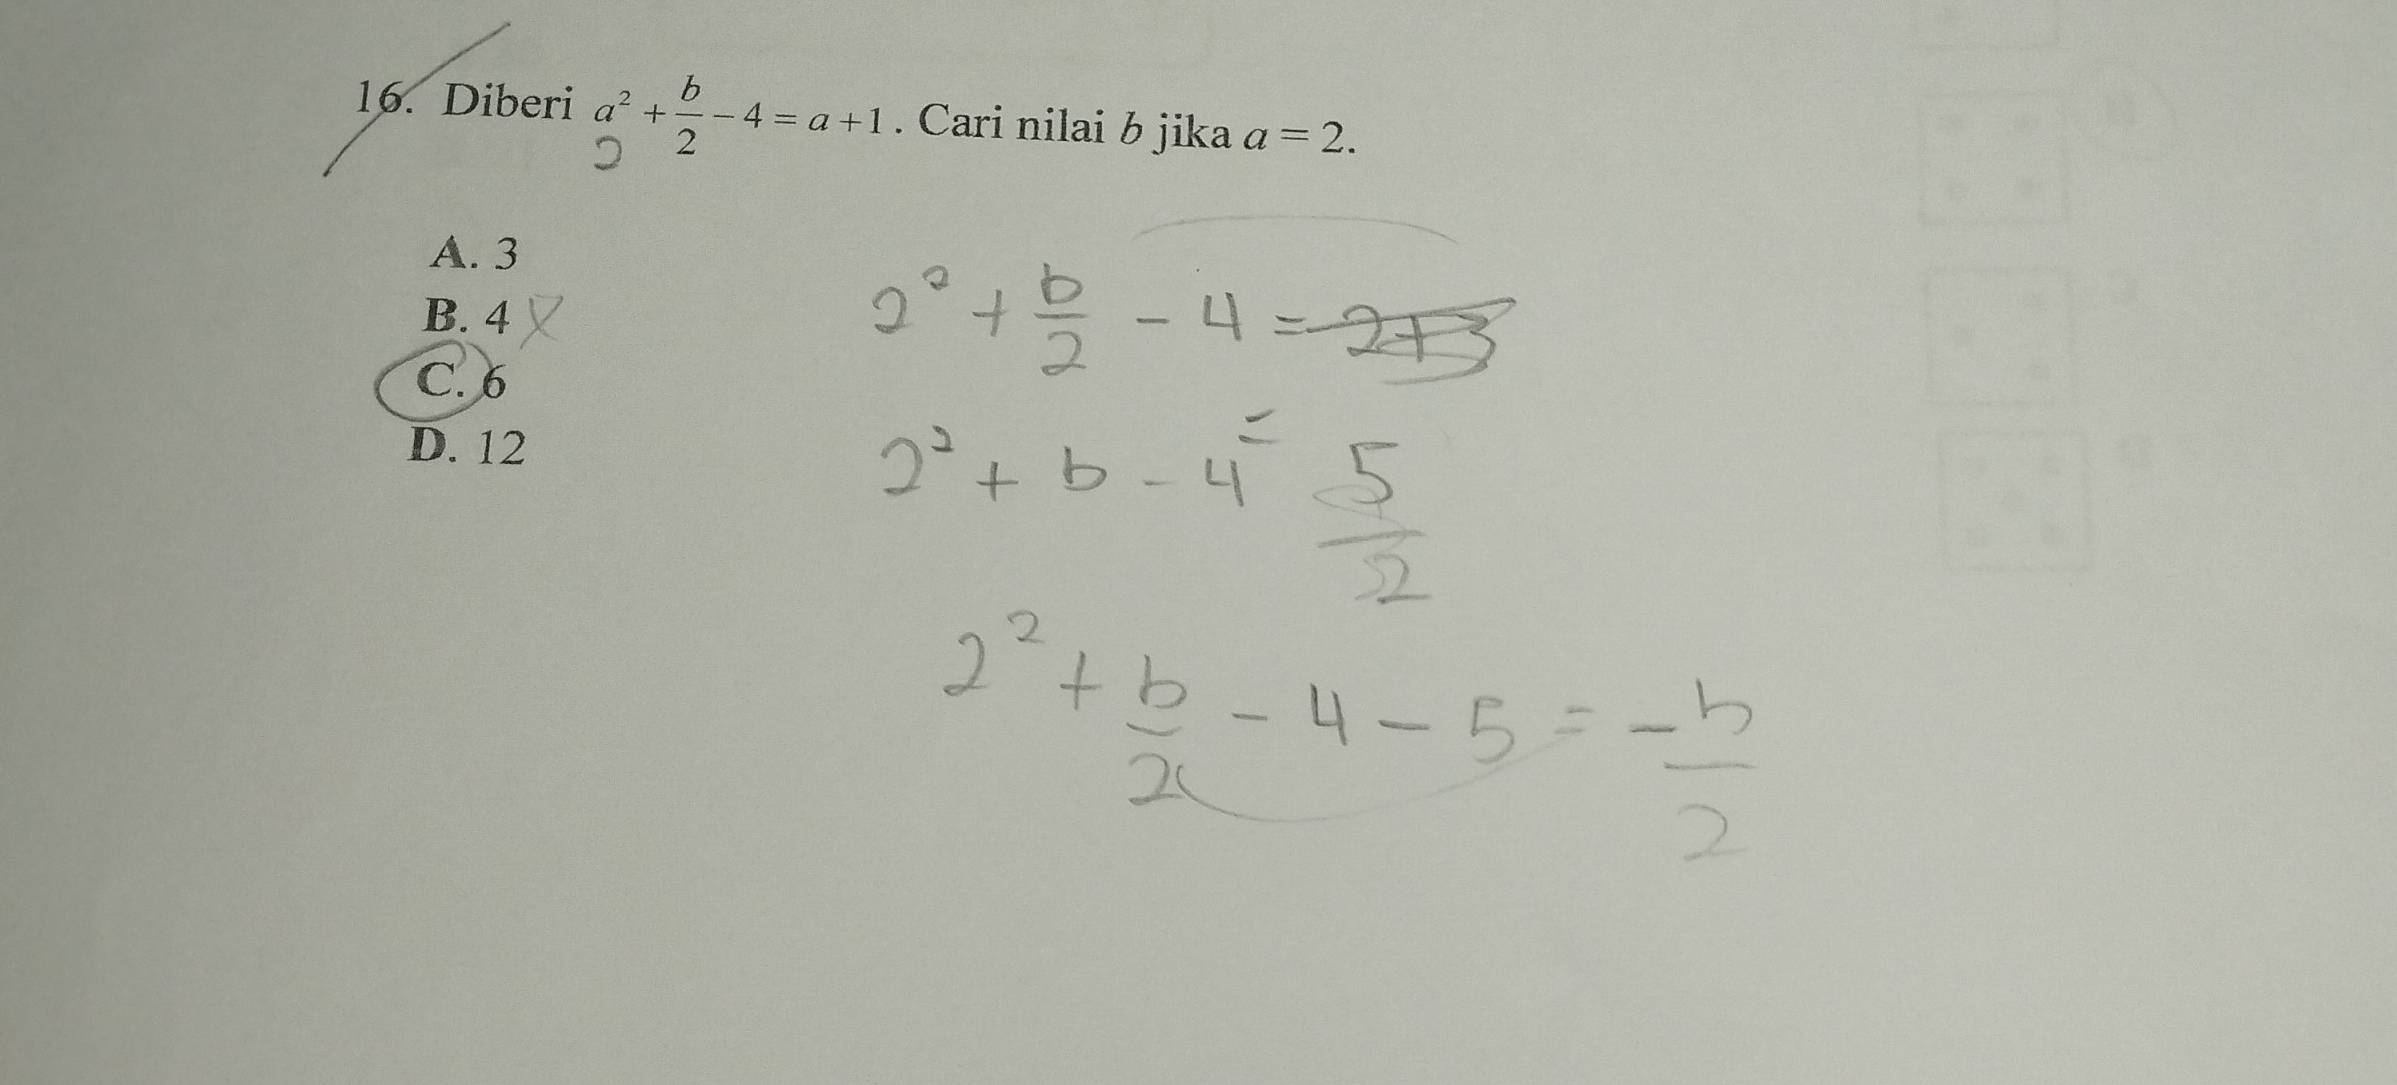 16. Diberi a² + b/2 − 4 = a + 1. Cari nilai b jika a = 2.
2
A. 3
B. 4
C. 6
D. 12
2² + b/2 − 4 = 2+3
2² + b − 4 = 5/2
2² + b/2 − 4 − 5 = − b/2